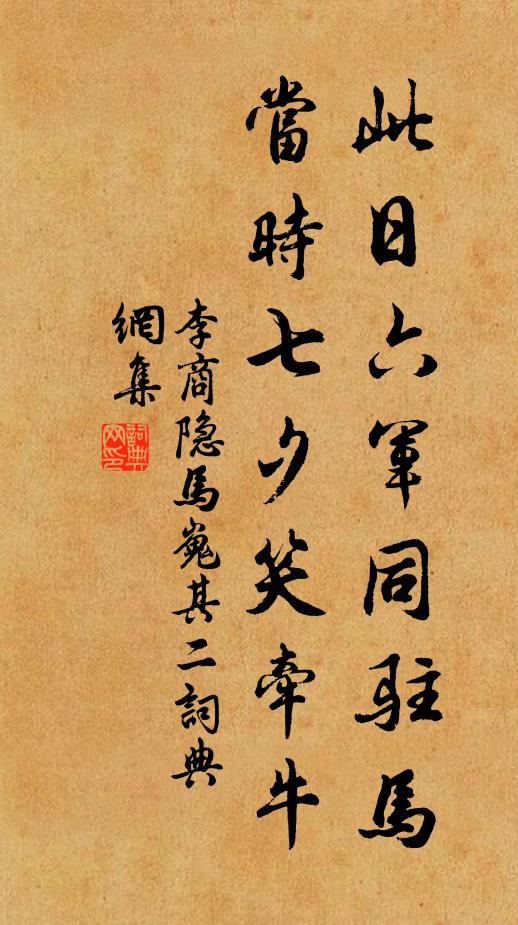 此日六軍同駐馬
當時七夕笑牽牛
李商隐馬嵬其二詞典
網集
詞典網印